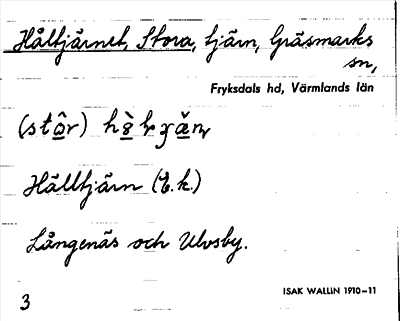 Håltjärnet, Stora, tjärn, Gräsmarks
sn,
Fryksdals hd, Värmlands län
(stôr)
Hålltjärn (E.k.)
Långenäs och Ulvsby.
ISAK WALLIN 1910-11
3